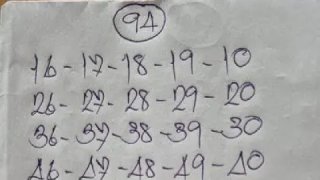 94
16-17-18-19-10
26-27-28-29-20
36-37-38-39-30
46-47-48-49-40